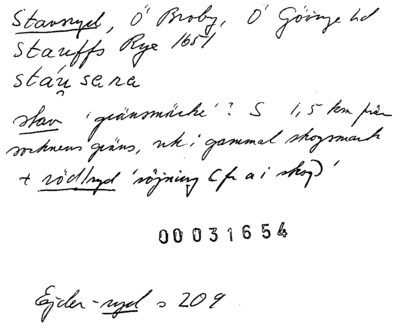 Stavsryd, Ö Broby, Ö Göinge hd
Stauffs Rye 1651
stáu sera
stav 'gränsmärke'? S 1,5 km från
socknens gräns, ntr i gammal skogsmark
+ röd/ryd 'röjning (fr a i skog)'
00031654
Ejder-ryd s 209